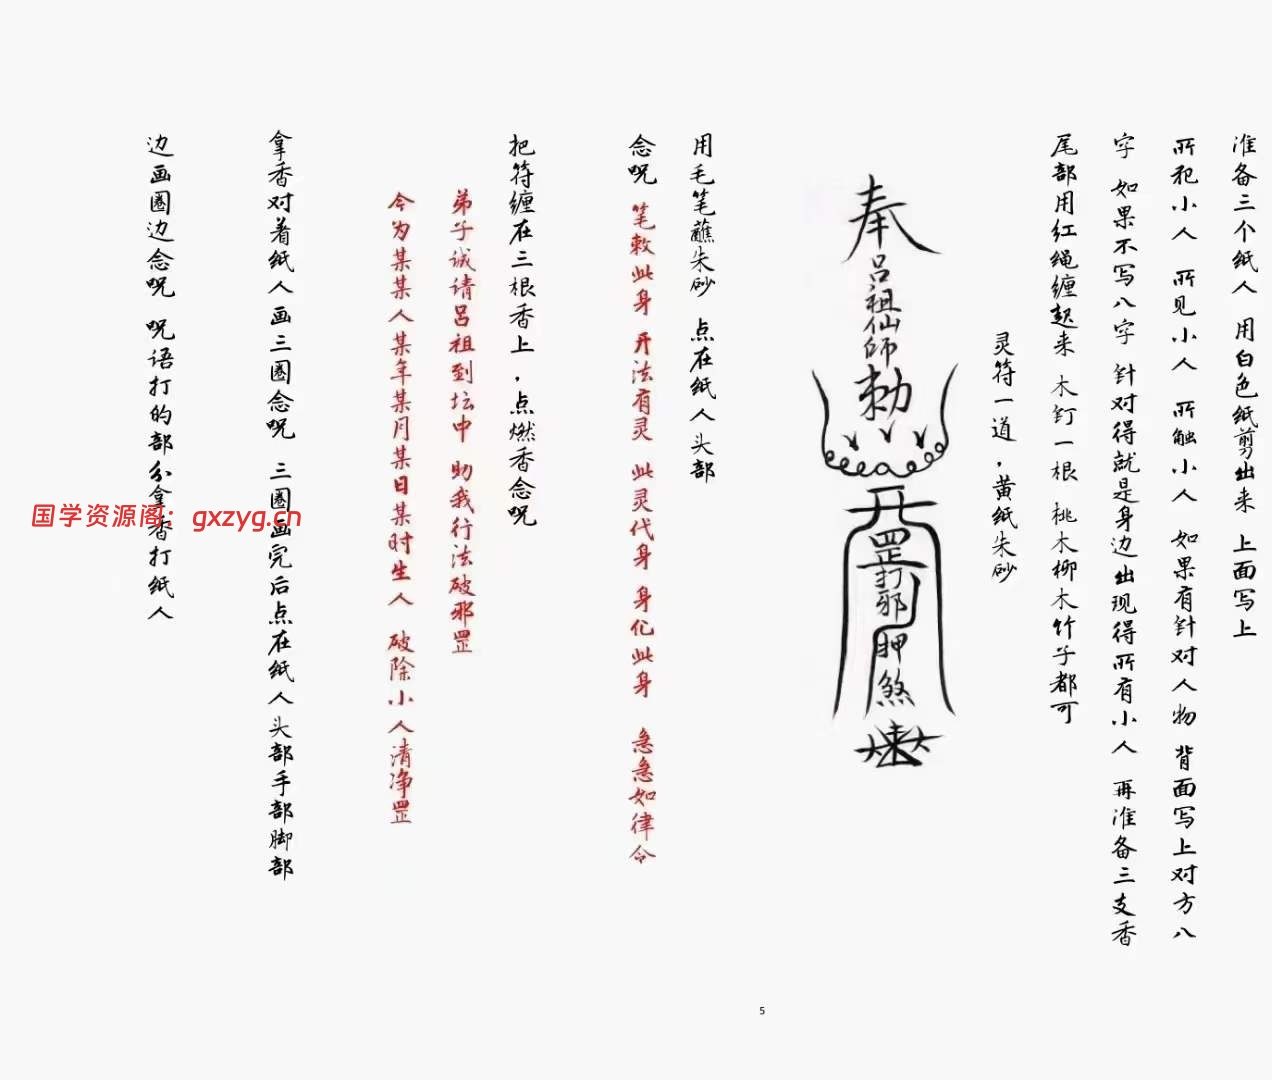 准备三个纸人 用白色纸剪出来 上面写上
所犯小人 所见小人 所触小人 如果有针对人物 背面写上对方八
字 如果不写八字 针对得就是身边出现得所有小人 再准备三支香
尾部用红绳缠起来 木钉一根 桃木柳木竹子都可
灵符一道，黄纸朱砂
奉
吕祖仙師
勅
开
罡打邪
押煞
用毛笔蘸朱砂 点在纸人头部
念呪 笔敕此身 开法有灵 此灵代身 身化此身 急急如律令
把符缠在三根香上，点燃香念呪
弟子诚请吕祖到坛中 助我行法破邪罡
今为某某人某年某月某日某时生人 破除小人清净罡
拿香对着纸人画三圈念呪 三圈画完后点在纸人头部手部脚部
边画圈边念呪 呪语打的部分拿香打纸人
国学资源阁：gxzyg.cn
5